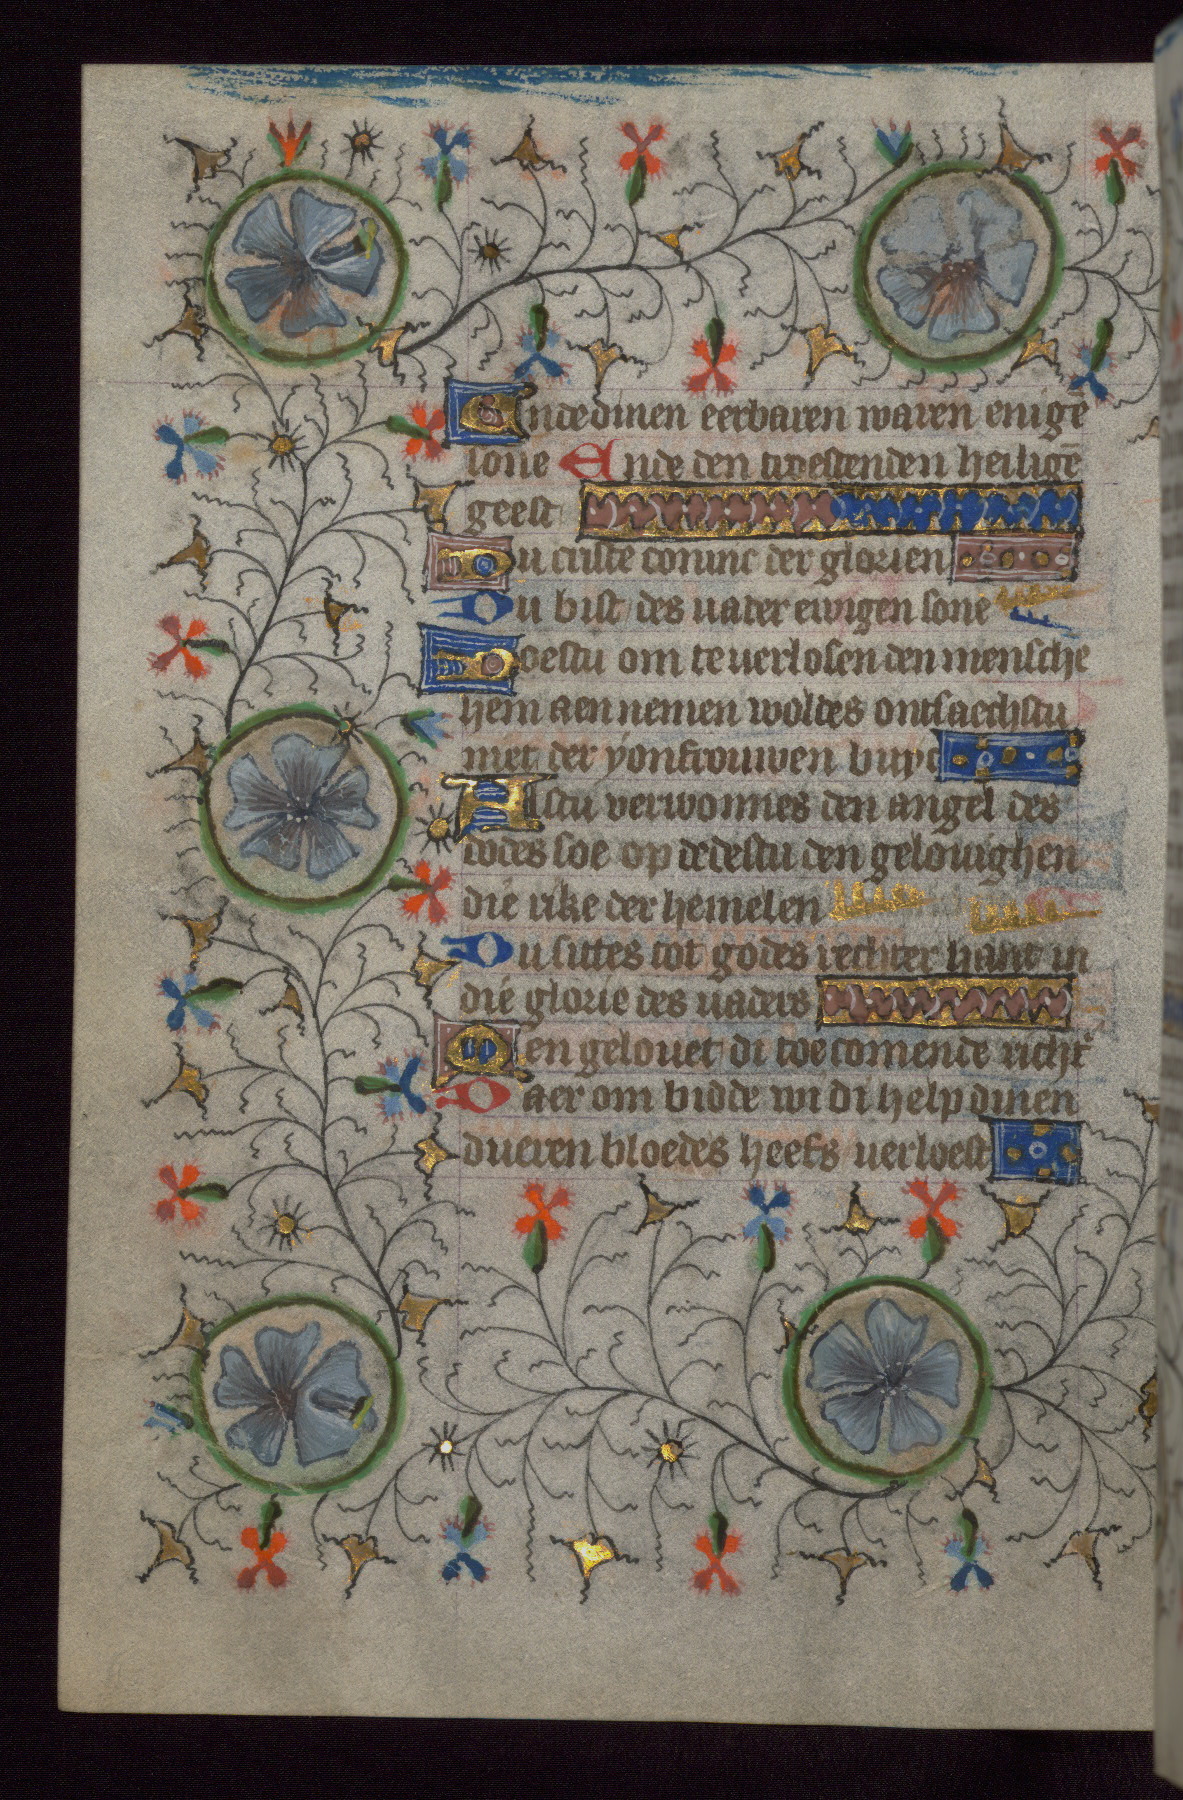 Ende dinen eerbaren waren enigē
sone Ende den troestenden heiligē
geest
Du criste coninc der glorien
Du bist des uader ewigen sone
Doestu om te uerlosen den mensche
hem aen nemen woldes ontsaechstu
niet der yonfrouwen buyc
Alstu verwonnes den angel des
dodes soe op dedestu den gelouighen
die rike der hemelen
Du sittes tot godes rechter hant in
die glorie des uaders
Men gelouet di toecomende richt
Daer om bidde wi di help dinen
dueren bloedes heefs uerloest